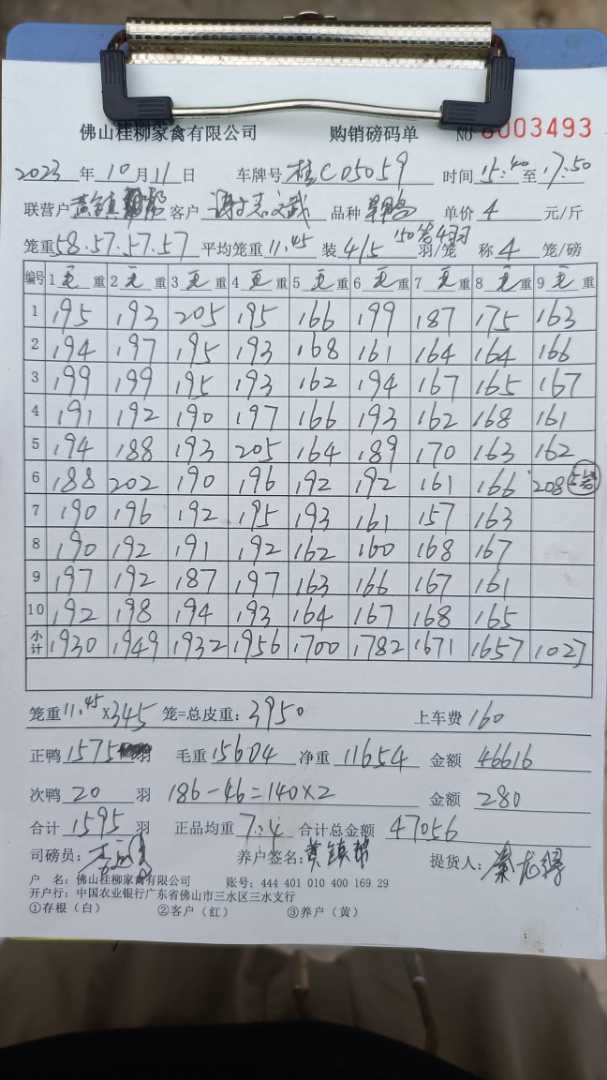 佛山桂柳家禽有限公司 购销磅码单 NO 8003493
2023年10月11日 车牌号 桂C05059 时间 15:40至17:50
联营户 客户 品种 单价 4 元/斤
笼重58.57.57.57 平均笼重11.45 装4/5 羽/笼 称4笼/磅
编号 1毛重 2毛重 3毛重 4毛重 5毛重 6毛重 7毛重 8毛重 9毛重
1 195 193 205 195 166 199 187 175 163
2 194 197 195 193 168 161 164 164 166
3 199 199 195 193 162 194 167 165 167
4 191 192 190 197 166 193 162 168 161
5 194 188 193 205 164 189 170 163 162
6 188 202 190 196 192 192 161 166 208 5笼
7 190 196 192 195 193 161 157 163
8 190 192 191 192 162 160 168 167
9 197 192 187 197 163 166 167 161
10 192 198 194 193 164 167 168 165
小计 1930 1949 1932 1956 1700 1782 1671 1657 1027
笼重11.45×345笼=总皮重:3950 上车费160
正鸭1575羽 毛重15604 净重11654 金额46616
次鸭20羽 186-46=140×2 金额280
合计1595羽 正品均重7.4 合计总金额47056
司磅员: 养户签名:黄镇帮 提货人:
户 名:佛山桂柳家禽有限公司 账号:444 401 010 400 169 29
开户行:中国农业银行广东省佛山市三水区三水支行
①存根(白) ②客户(红) ③养户(黄)